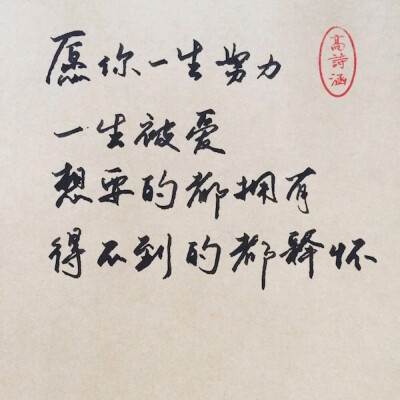 愿你一生努力
一生被爱
想要的都拥有
得不到的都释怀
高詩涵